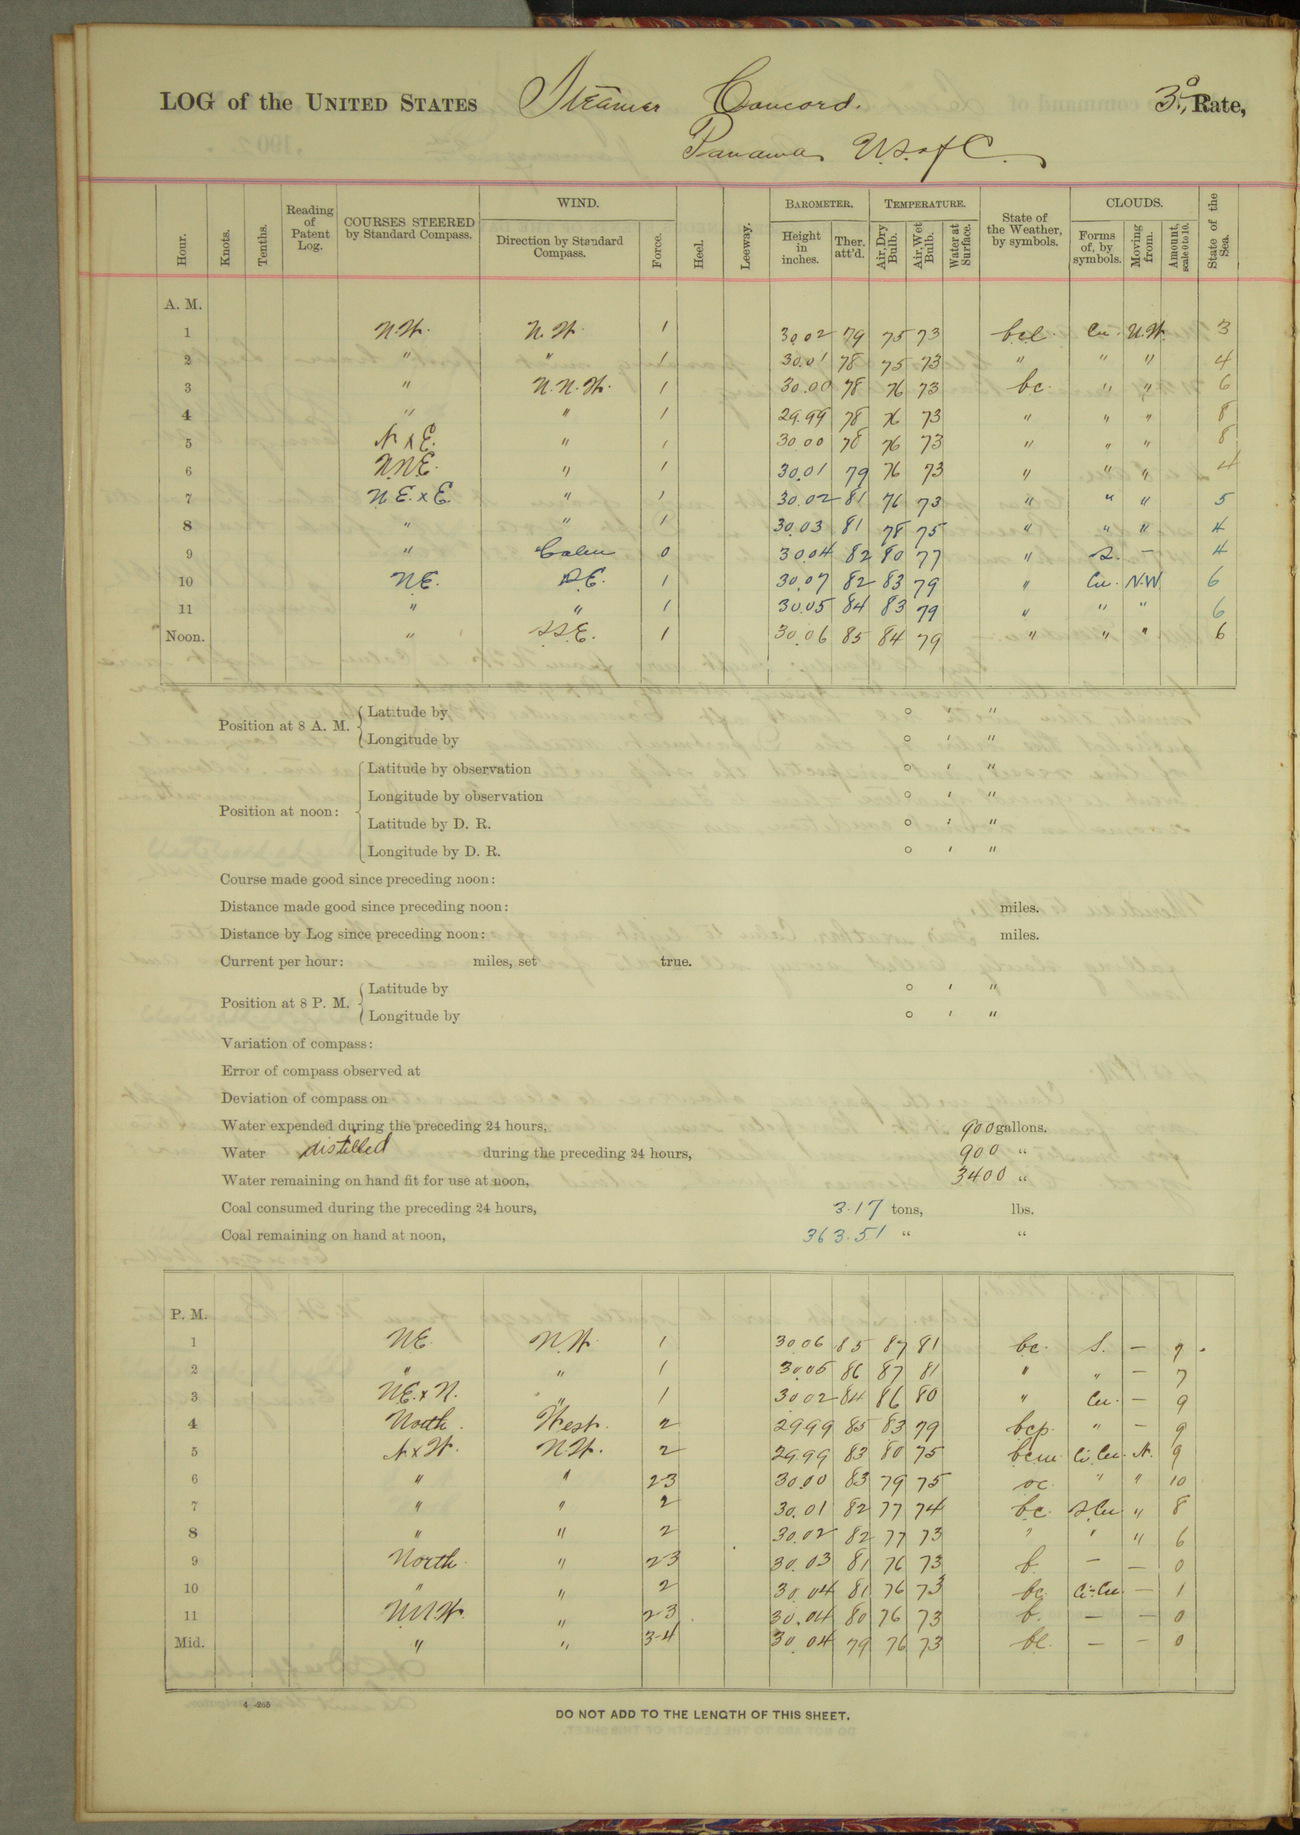 LOG of the UNITED STATES Steamer Concord. 3d Rate,
Panama U.S. of C.
Hour. Knots. Tenths. Reading of Patent Log. COURSES STEERED by Standard Compass. WIND. Direction by Standard Compass. Force. Heel. Leeway. BAROMETER. Height in inches. Ther. att'd. TEMPERATURE. Air, Dry Bulb. Air, Wet Bulb. Water at Surface. State of the Weather, by symbols. CLOUDS. Forms of, by symbols. Moving from. Amount, scale 0 to 10. State of the Sea.
A. M.
1 N.W. N.W. 1 30.02 79 75 73 bcl. Cu. N.W. 3
2 " " 1 30.01 78 75 73 " " " 4
3 " N.N.W. 1 30.00 78 76 73 bc. " " 6
4 " " 1 29.99 78 76 73 " " " 8
5 N x E. " 1 30.00 78 76 73 " " " 8
6 N.N.E. " 1 30.01 79 76 73 " " " 4
7 N.E. x E. " 1 30.02 81 76 73 " " " 5
8 " " 1 30.03 81 78 75 " " " 4
9 " Calm 0 30.04 82 80 77 " S. – 4
10 N.E. S.E. 1 30.07 82 83 79 " Cu. N.W. 6
11 " " 1 30.05 84 83 79 " " " 6
Noon. " S.S.E. 1 30.06 85 84 79 " " " 6
Position at 8 A. M. { Latitude by ° ' "
Longitude by ° ' "
Position at noon: { Latitude by observation ° ' "
Longitude by observation ° ' "
Latitude by D. R. ° ' "
Longitude by D. R. ° ' "
Course made good since preceding noon:
Distance made good since preceding noon: miles.
Distance by Log since preceding noon: miles.
Current per hour: miles, set true.
Position at 8 P. M. { Latitude by ° ' "
Longitude by ° ' "
Variation of compass:
Error of compass observed at
Deviation of compass on
Water expended during the preceding 24 hours, 900 gallons.
Water distilled during the preceding 24 hours, 900 "
Water remaining on hand fit for use at noon, 3400 "
Coal consumed during the preceding 24 hours, 3.17 tons, lbs.
Coal remaining on hand at noon, 363.51 " "
P. M.
1 NE. N.W. 1 30.06 85 87 81 bc. S. – 7
2 " " 1 30.05 86 87 81 " " – 7
3 NE. x N. " 1 30.02 84 86 80 " Cu. – 9
4 North. West. 2 29.99 85 83 79 bcp. " – 9
5 N x W. N.W. 2 29.99 83 80 75 bcm Ci. Cu. N. 9
6 " " 2-3 30.00 83 79 75 oc. " " 10
7 " " 2 30.01 82 77 74 bc. S.Cu " 8
8 " " 2 30.02 82 77 73 " " " 6
9 North. " 2-3 30.03 81 76 73 b. – – 0
10 " " 2 30.04 81 76 73 bc. Ci-Cu – 1
11 NNW. " 2-3 30.04 80 76 73 b. – – 0
Mid. " " 3-4 30.04 79 76 73 bl. – – 0
4—265
DO NOT ADD TO THE LENGTH OF THIS SHEET.